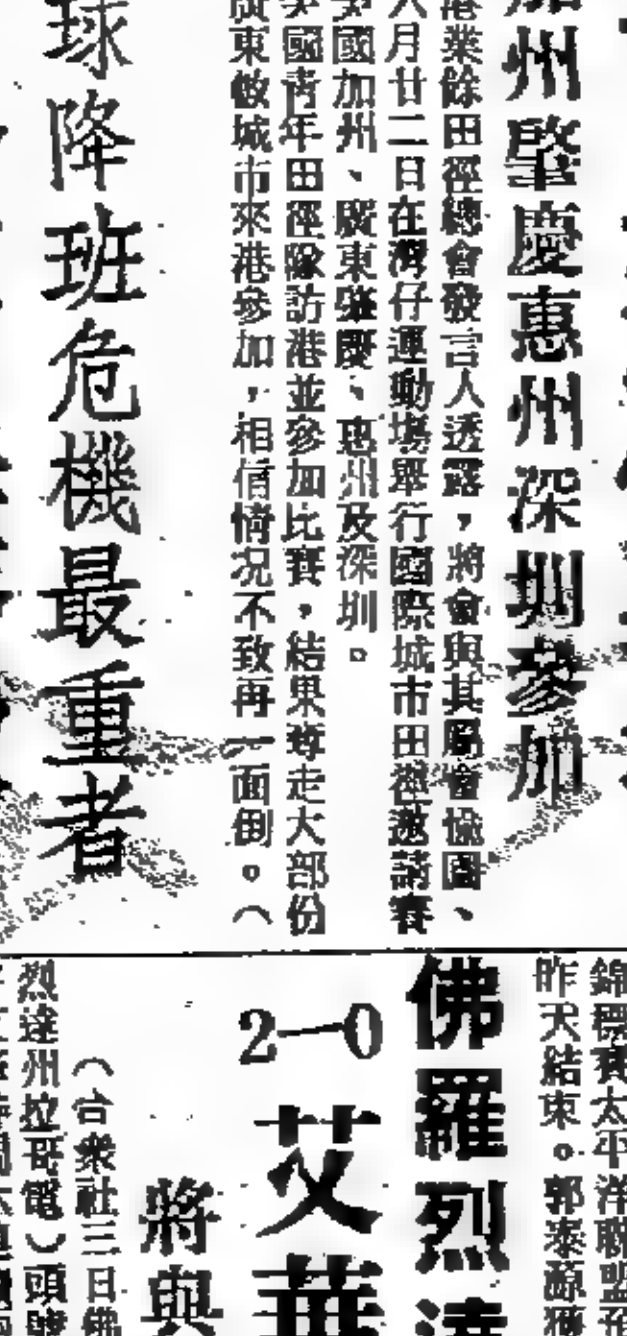 加州肇慶惠州深圳參加
港業餘田徑總會發言人透露，將會與其屬會協團、
六月廿二日在灣仔運動場舉行國際城市田徑邀請賽
國加州、廣東肇慶、惠州及深圳。
國青年田徑隊訪港並參加比賽，結果奪走大部份
廣東數城市來港參加，相信情况不致再一面倒。（
球降班危機最重者
錦標賽太平洋聯盟
昨天結束。郭泰源獲
佛羅烈達
2—0
艾華
將與
（合衆社三日佛
烈達州拉哥電）頭號